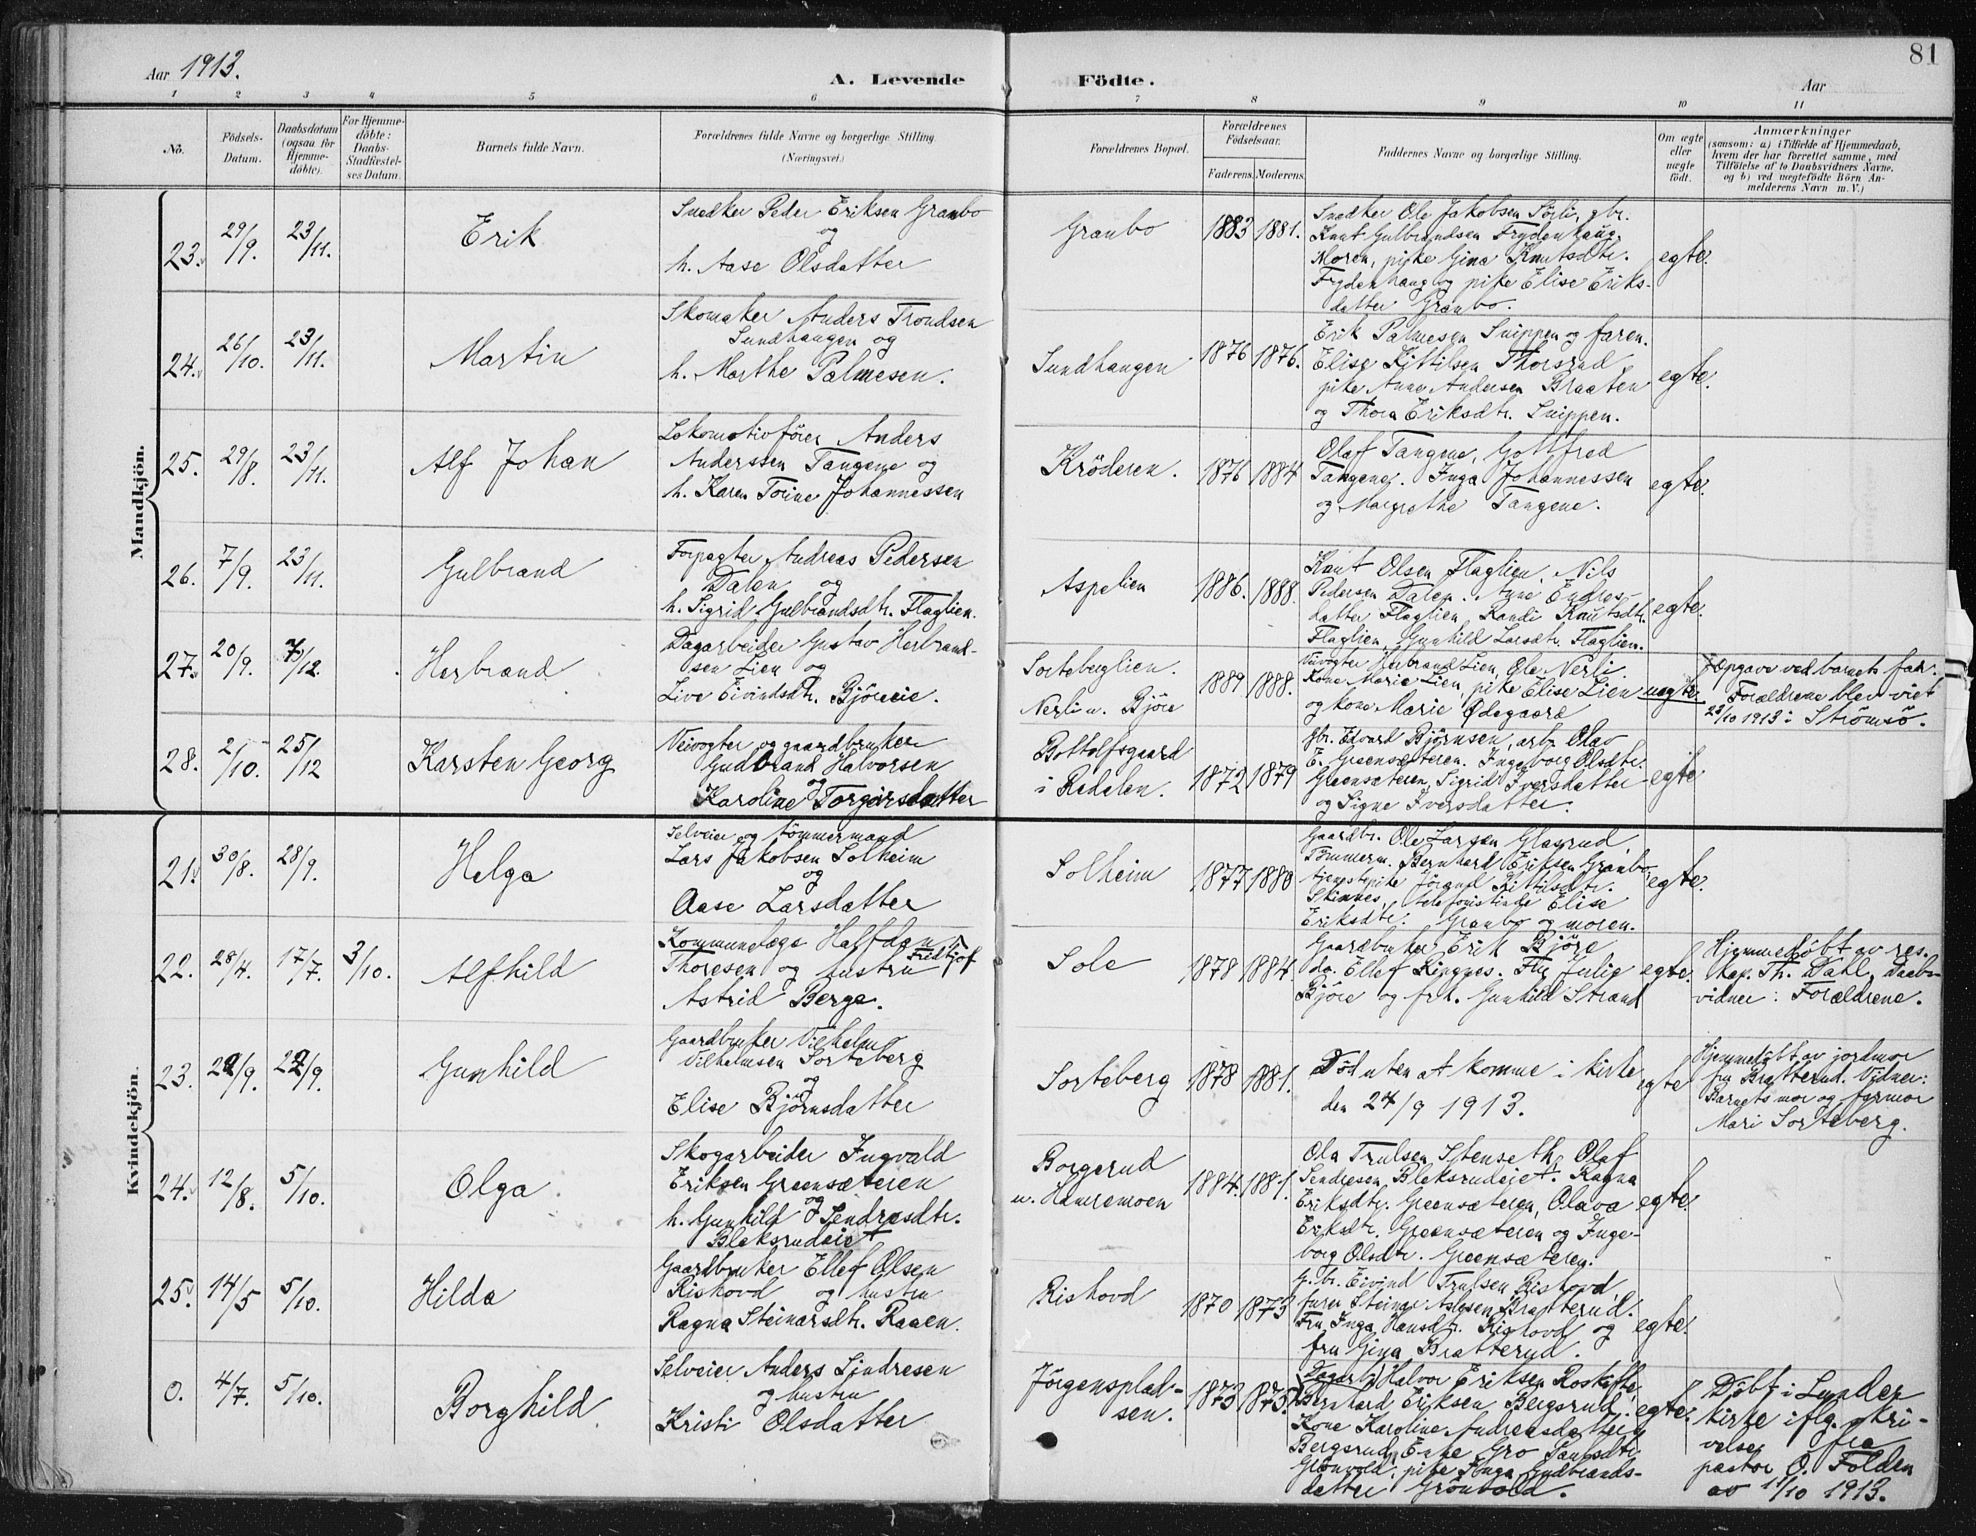 81
Aar 1913.
A. Levende Födte.
Aar
1 2 3 4 5 6 7 8 9 10 11
No.
Födsels-
Datum.
Daabsdatum
(ogsaa for
Hjemme-
döbte).
For Hjemme-
döbte:
Daabs-
Stadfæstel-
ses Datum.
Barnets fulde Navn.
Forældrenes fulde Navne og borgerlige Stilling
(Næringsvei.)
Forældrenes Bopæl.
Forældrenes
Födselsaar.
Faderens. Moderens.
Faddernes Navne og borgerlige Stilling.
Om ægte
eller
uægte
födt.
Anmærkninger
(saasom: a) i Tilfælde af Hjemmedaab,
hvem der har forrettet samme, med
Tilföielse af to Daabsvidners Navne,
og b) ved uægtefödte Börn An-
melderens Navn m. V.)
Mandkjön.
23. 29/9. 23/11.
Erik
Snedker Peder Eriksen Granbo
og
h. Aase Olsdatter
Granbo
1883 1881.
Snedker Ole Jakobsen Sörli, gbr.
Knut Gulbrandsen Frydenhaug.
Moren, pike Gina Knutsdtr.
Frydenhaug og pike Elise Eriks-
datter Granbo.
egte.
24. 26/10. 23/11.
Martin
Skomaker Anders Trondsen
Sundhaugen og
h. Marthe Palmesen.
Sundhaugen
1876 1876.
Erik Palmesen Snippen og faren.
Elise Kittilsen Thorsrud
pike Anne Andersen Braaten
og Thora Eriksdtr. Snippen.
egte.
25. 29/8. 23/11.
Alf Johan
Lokomotivförer Anders
Anderssen Tangene og
h. Karen Torine Johannessen
Kröderen.
1876 1884
Olaf Tangene, Gottfred
Tangene. Inga Johannessen
og Margrethe Tangene.
egte.
26. 7/9. 23/11.
Gulbrand
Forpagter Andreas Pedersen
Dalen og
h. Sigrid Gulbrandsdtr. Flaglien.
Aspelien
1886. 1888.
Knut Olsen Flaglien, Nils
Pedersen Dalen. Anne Endres-
datter Flaglien, Randi Knutsdtr.
Flaglien, Gunhild Larsdtr. Flaglien.
egte.
27. 20/9. 7/12.
Herbrand
Dagarbeider Gustav Herbrand-
sen Lien og
Live Eivindsdtr. Björeeie.
Sorteberglien.
Nerli u. Björe
1889 1888.
Veivogter Herbrand Lien, Ole Nerli.
Kone Marie Lien, pike Elise Lien
og kone Marie Ødegaard
uegte.
Opgave ved barnets far.
Forældrene blev viet
23/10 1913 i Strömsö.
28. 2/10. 25/12
Karsten Georg
Veivogter og gaardbruker
Gudbrand Halvorsen
og
Karoline Torgersdatter
Bottolfsgaard
i Rodalen.
1872 1879
Gbr. Edvard Bjørnsen, arb. Olav
E. Greensæteren. Ingeborg Olsdtr.
Greensæteren, Sigrid Iversdatter
og Signe Iversdatter.
egte
Kvindekjön.
21. 30/8. 28/9.
Helga
Selveier og tömmermand
Lars Jakobsen Solheim
og
Aase Larsdatter
Solheim
1877 1880
Gaardbr. Ole Larsen Glasrud,
Tömmerm. Bernhard Eriksen Granbo,
tjenestepike Jörand Kittilsdtr.
Skinnes, telefonistinde Elise
Eriksdtr. Granbo og moren.
egte.
22. 28/4. 17/7. 3/10.
Alfhild
Kommunelæge Halfdan Fridtjof
Thoresen og hustru
Astrid Berge.
Sole
1878 1884.
Gaardbruker Erik Björe
do. Ellef Ringnes. Fru Julie
Björe og frk. Gunhild Strand
egte.
Hjemmedöbt av res.
kap. Th. Dahl, Daabs-
vidner: Forældrene.
23. 22/9. 22/9.
Gunhild
Gaardbruker Vilhelm
Vilhelmsen Sorteberg
og
Elise Bjørnsdatter
Sorteberg
1878 1881.
Död uten at komme i kirke
den 24/9 1913.
egte
Hjemmedöbt av jordmor
fru Bratterud. Vidner:
Barnets mor og farmor
Mari Sorteberg.
24. 12/8. 5/10.
Olga
Skogarbeider Ingvald
Eriksen Greensæteren
og
h. Gunhild Sendresdtr.
Bleksrudeiet
Borgerud
u. Hamremoen
1884. 1881.
Ola Trulsen Stenseth, Olaf
Sendresen Bleksrudeiet. Ragna
Eriksdtr. Greensæteren, Olava
Eriksdtr. Greensæteren og Inge-
borg Olsdtr. Greensæteren.
egte.
25. 14/5 5/10.
Hilda
Gaardbruker Ellef Olsen
Rishovd og hustru
Ragna Steinarsdtr. Raaen.
Rishovd
1870 1873
G. br. Eivind Trulsen Rishovd,
furer Steinar Aslesen Bratterud.
Fru Inga Hansdtr. Rishovd og
fru Gina Bratterud.
egte.
0. 4/7. 5/10.
Borghild
Selveier Anders Sindresen
og hustru
Kristi Olsdatter
Jörgensplad-
sen.
1873 1873.
Halvor Eriksen Roskifte,
Bernhard Eriksen Bergsrud.
Kone Karoline Andreasdatter
Bergsrud, Enke Gro Paulsdtr.
Grönvold, pike Inga Gudbrands-
datter Grönvold.
egte.
Döbt i Lunder
kirke iflg. skri-
velse fra
pastor O. Folden
av 11/10 1913.